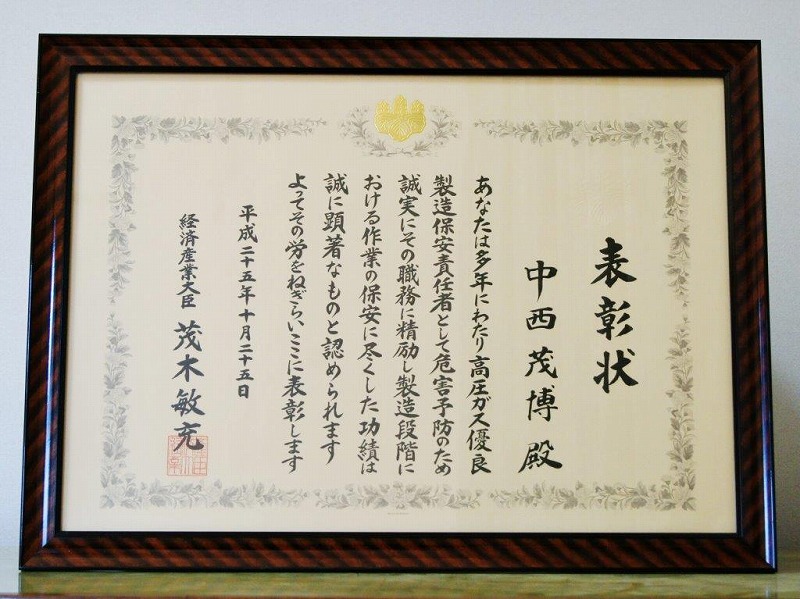 表彰状
中西茂博殿
あなたは多年にわたり高圧ガス優良
製造保安責任者として危害予防のため
誠実にその職務に精励し製造段階に
おける作業の保安に尽くした功績は
誠に顕著なものと認められます
よってその労をねぎらいここに表彰します
平成二十五年十月二十五日
経済産業大臣 茂木敏充